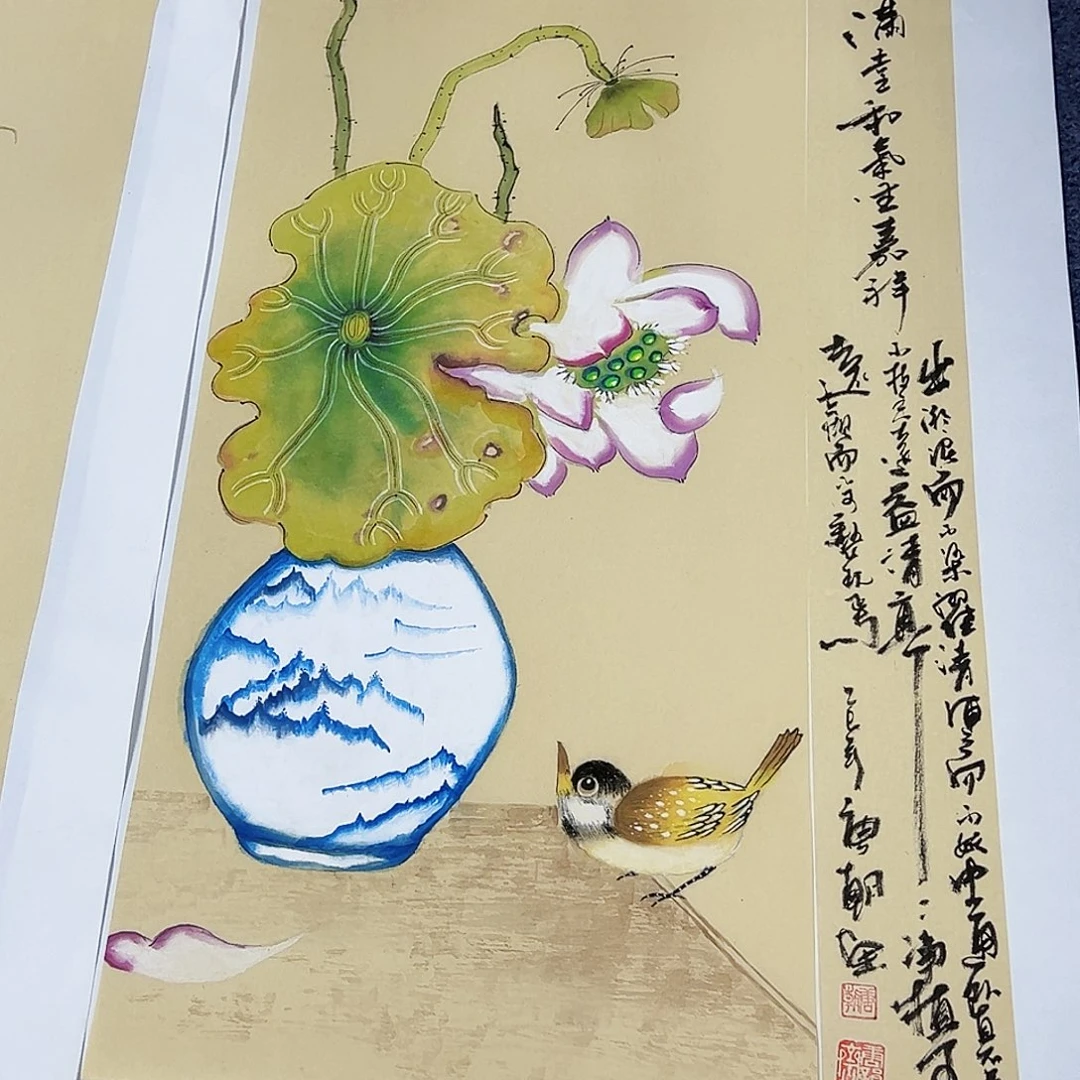 满堂和氣生嘉祥
出淤泥而不染濯清涟而不妖中通外直不
不枝香远益清亭亭净植可
远观而不可亵玩焉 乙巳年 唐朝